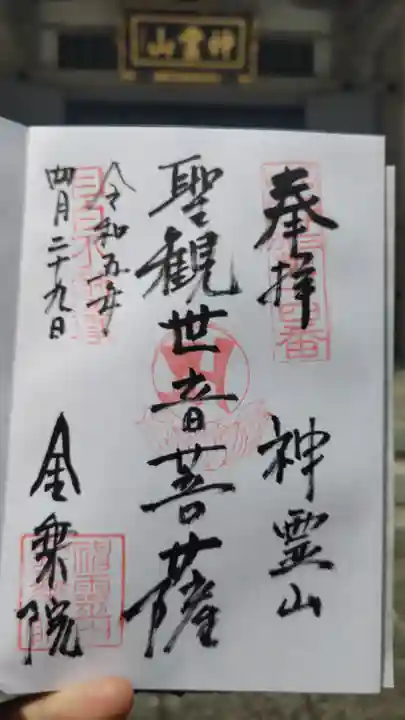 神霊山
奉拝
神霊山
聖観世音菩薩
令和五年
四月二十九日
金乗院